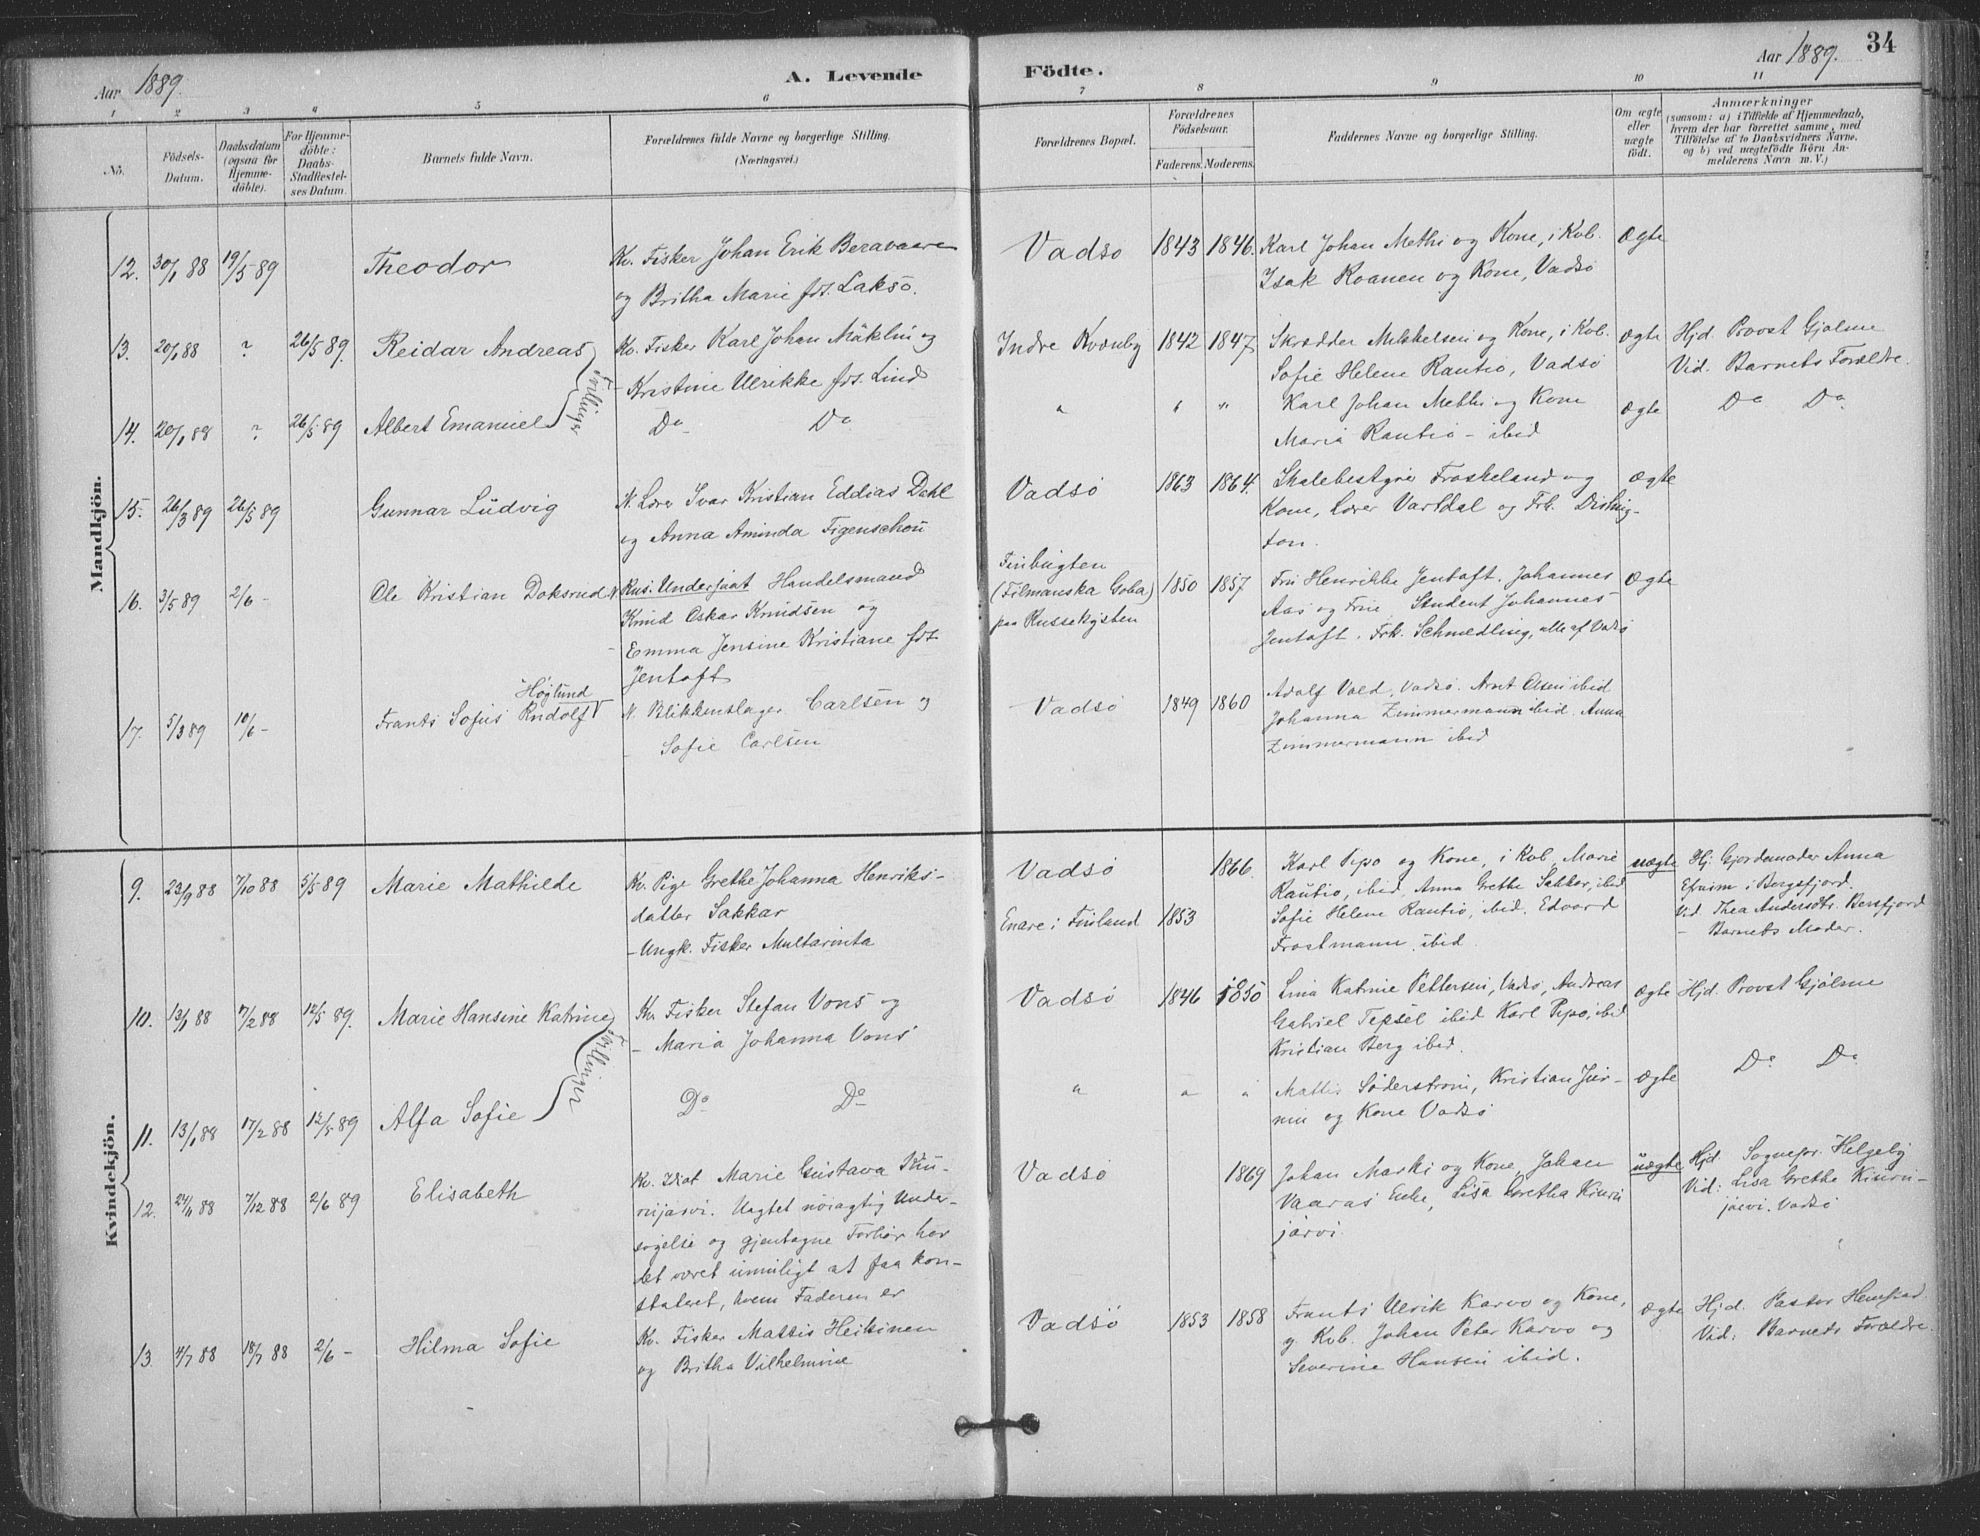 Aar 1889.
A. Levende Födte.
Aar 1889.
34
1 2 3 4 5 6 7 8 9 10 11
No.
Födsels-Datum.
Daabsdatum (ogsaa for Hjemme-döbte).
For Hjemme-döbte: Daabs-Stadfæstel-ses Datum.
Barnets fulde Navn.
Forældrenes fulde Navne og borgerlige Stilling. (Næringsvei.)
Forældrenes Bopæl.
Forældrenes Födselsaar.
Faderens. Moderens.
Faddernes Navne og borgerlige Stilling.
Om ægte eller uægte födt.
Anmærkninger
(saasom: a) i Tilfælde af Hjemmedaab,
hvem der har forrettet samme, med
Tilföielse af to Daabsvidners Navne.
og b) ved uægtefödte Börn An-
melderens Navn m. V.)
Mandkjön.
12. 30/1 88 19/5 89
Theodor
Kv. Fisker Johan Erik Beravaara
og Britha Marie fdt. Laksø.
Vadsø 1843 1846.
Karl Johan Methi og Kone, i Kvb.
Isak Kvanen og Kone, Vadsø
Ægte
13. 20/1 88 ? 26/5 89.
Reidar Andreas
Kv. Fisker Karl Johan Mäklin og
Kristine Ulrikke fdt. Lind
Indre Kvænby 1842 1847
Skrædder Mikkelsen og Kone, i Kvb.
Sofie Helene Rautio, Vadsø
ægte
Hjd Provst Gjølme
Vid. Barnets Forældre.
Tvillinger
14. 20/1 88 ? 26/5 89
Albert Emanuel
Do Do
" " "
Karl Johan Methi og Kone
Maria Rautio - ibid
ægte
Do Do
15. 26/3 89 26/5 89
Gunnar Ludvig
N. Lærer Ivar Kristian Eddias Dahl
og Anna Aminda Figenschou
Vadsø 1863 1864.
Skolebestyrer Froskeland og
Kone, Lærer Vartdal og Frk. Disling-
ton.
Ægte
16. 3/5 89 2/6 -
Ole Kristian Doksrud
N Rus. Undersaat Handelsmand
Knud Oskar Knudsen og
- Emma Jensine Kristiane fdt.
Jentoft
Finbugten
(Filmanska Goba)
paa Russekysten
1850 1857
Fru Henrikke Jentoft. Johannes
Aas og Frue, Student Johannes
Jentoft. Frk. Schmedling, alle af Vadsø
Ægte
17. 5/3 89 10/6 -
Høglund
Frants Sofus Rudolf V
N. Blikkenslager Carlsen og
- Sofie Carlsen
Vadsø 1849 1860
Adolf Vold, Vadsø. Arnt Olsen ibid
Johanna Zimmermann ibid. Anna
Zimmermann ibid
Kvindekjön.
9. 23/9 88 7/10 88 5/5 89
Marie Mathilde
Kv. Pige Grethe Johanna Henriks-
datter Sakkar
- Ungk. Fisker Multarinta
Vadsø 1866.
Enare i Finland 1853
Karl Pipo og Kone, i Kvb, Marie
Rautio, ibid, Anna Grethe Sakkar, ibid
Sofie Helene Rautio, ibid. Edvard
Frostmann, ibid
uægte
Hj. Gjordemoder Anna
Efraim i Bergsfjord.
Vid. Thea Andersdtr. Bersfjord
- Barnets Moder.
10. 13/1 88 7/2 88 12/5 89.
Marie Hansine Katrine
Kv. Fisker Stefan Vons og
- Maria Johanna Vons
Vadsø 1846 1850
Lina Katrine Pettersen, Vadsø, Andreas
Gabriel Tepsel ibid Karl Pipo, ibid
Kristian Berg ibid.
ægte
Hjd. Provst Gjølme
Tvillinger
11. 13/1 88 17/2 88 12/5 89
Alfa Sofie
Do Do
" " "
Mattis Søderstrøm, Kristian
og Kone Vadsø
ægte
Do Do
12. 24/11 88 7/12 88 2/6 89
Elisabeth
Kv. Idiot Marie Gustava Kin-
rujärvi. Uagtet nøiagtig Under-
søgelse og gjentagne Forhør har
det været umuligt at faa kon-
stateret, hvem Faderen er
Vadsø 1869
Johan Marki og Kone, Johan
Vaaras Enke, Lisa Gretha Kinru
järvi.
uægte
Hjd. Sognepr. Helgeby
Vid: Lisa Grethe Kinru-
järvi. Vadsø
13 4/7 88 18/7 88 2/6 -
Hilma Sofie
Kv. Fisker Mattis Heikinen
og Britha Vilhelmine
Vadsø 1853 1858
Frants Ulrik Karvo og Kone,
y. Kvb. Johan Peter Karvo og
Severine Hansen ibid.
ægte
Hjd. Pastor
Vid: Barnets Forældre.